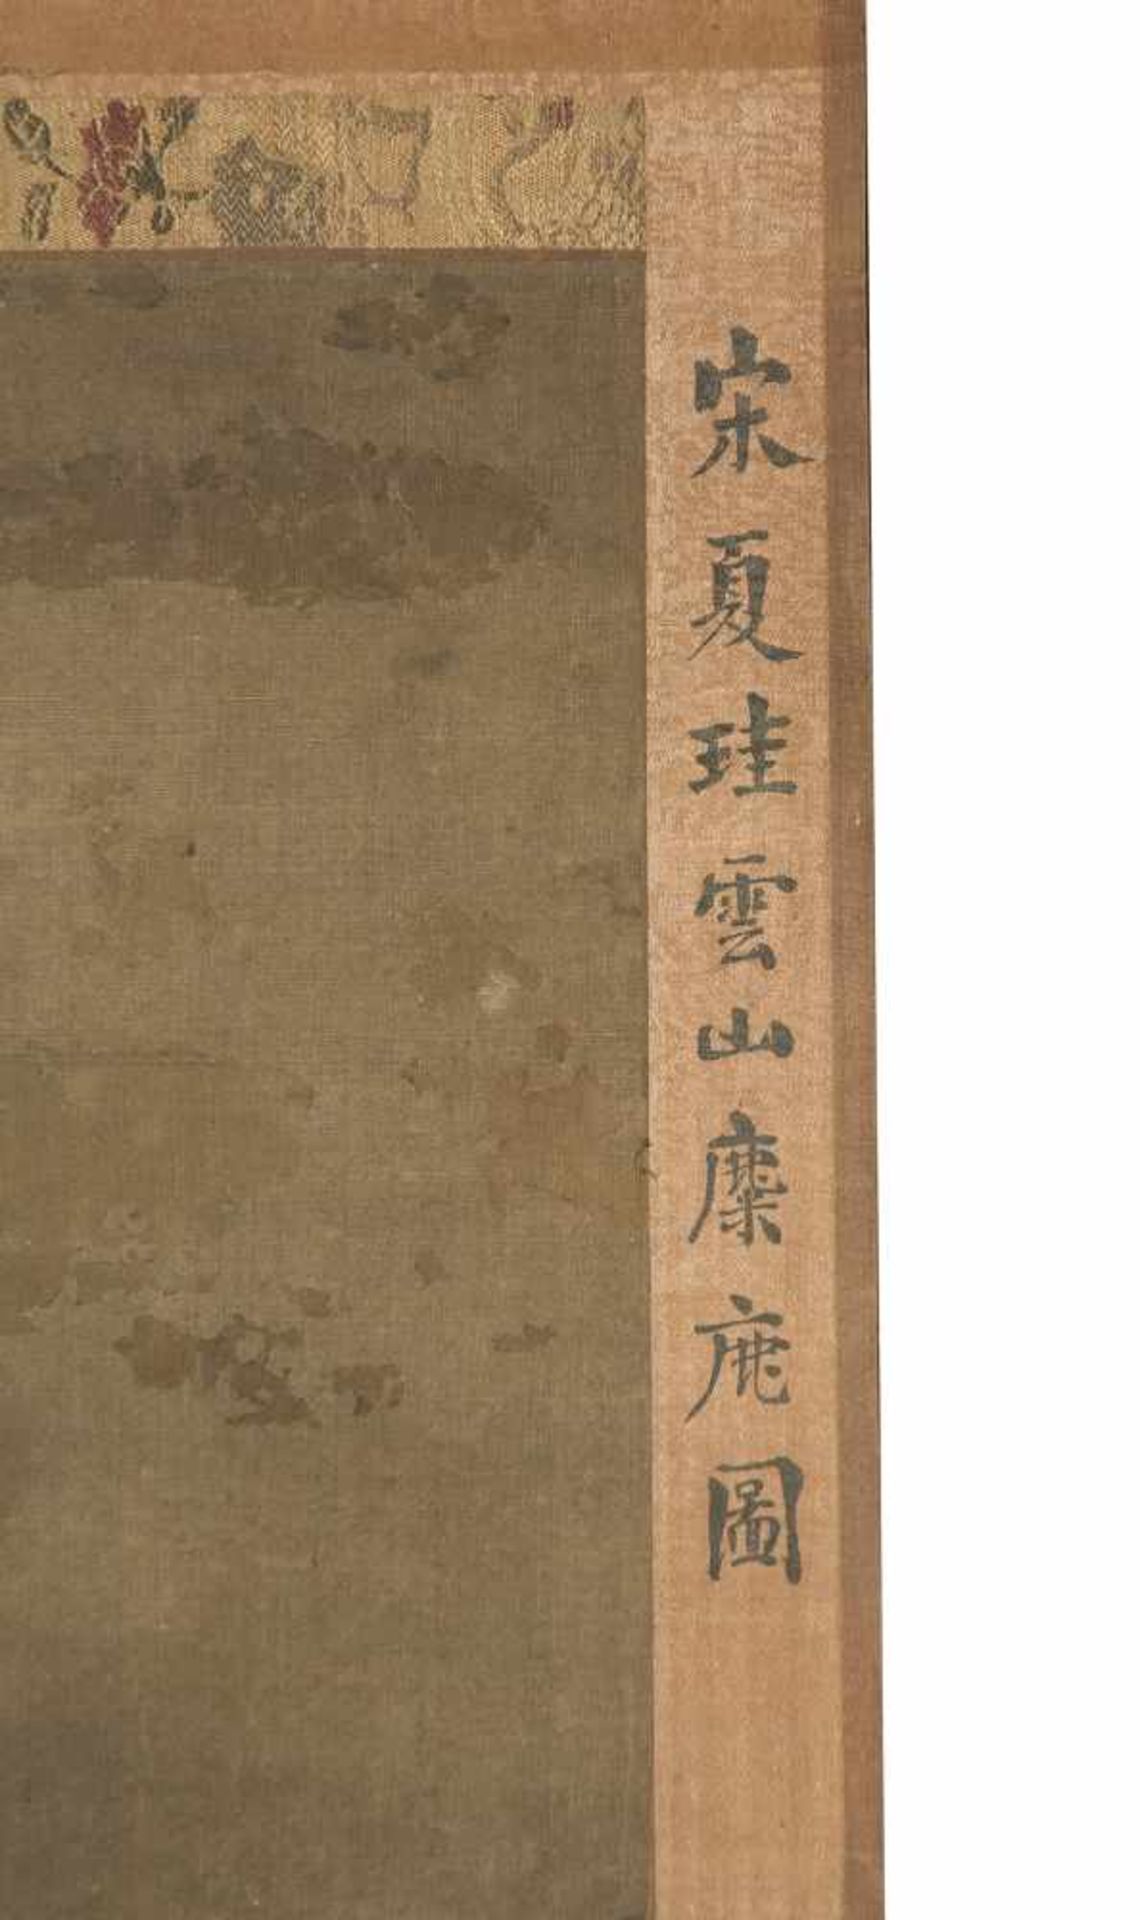 宋夏珪雲山麋鹿圖